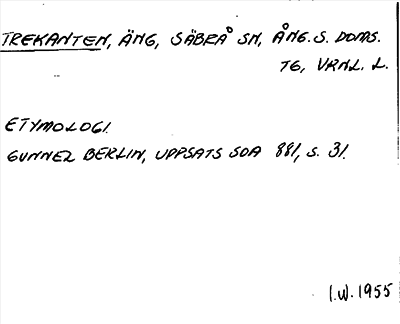 TREKANTEN, ÄNG, SÄBRÅ SN, ÅNG.S. DOMS.
TG, VRNL. L.
ETYMOLOGI.
GUNNEL BERLIN, UPPSATS SOA 881, S. 31.
I.W. 1955